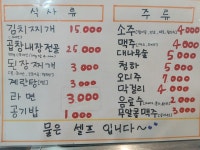 식사류
김치찌개 15,000
곱창내장전골 25,000
된장찌개 3,000
계란탕 3,000
라면 3,000
공기밥 1,000
주류
소주 4,000
맥주 4,000
대나무술 5,000
청하 5,000
오디주 7,000
막걸리 4,000
음료수 2,000
무알콜맥주 3,000
물은 셀프 입니다~